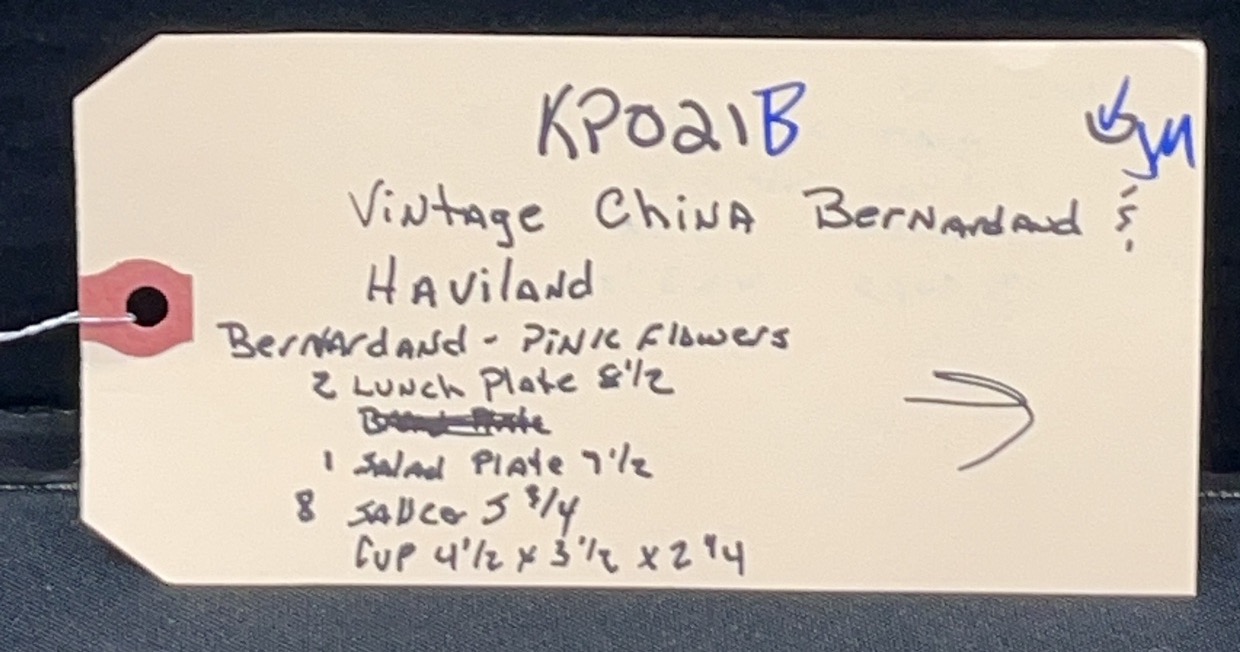 KP021B
JM
Vintage China Bernardaud &
Haviland
Bernardaud - Pink Flowers
2 Lunch Plate 8 1/2
1 Salad Plate 7 1/2
8 Saucer 5 3/4
Cup 4 1/2 x 3 1/2 x 2 1/4